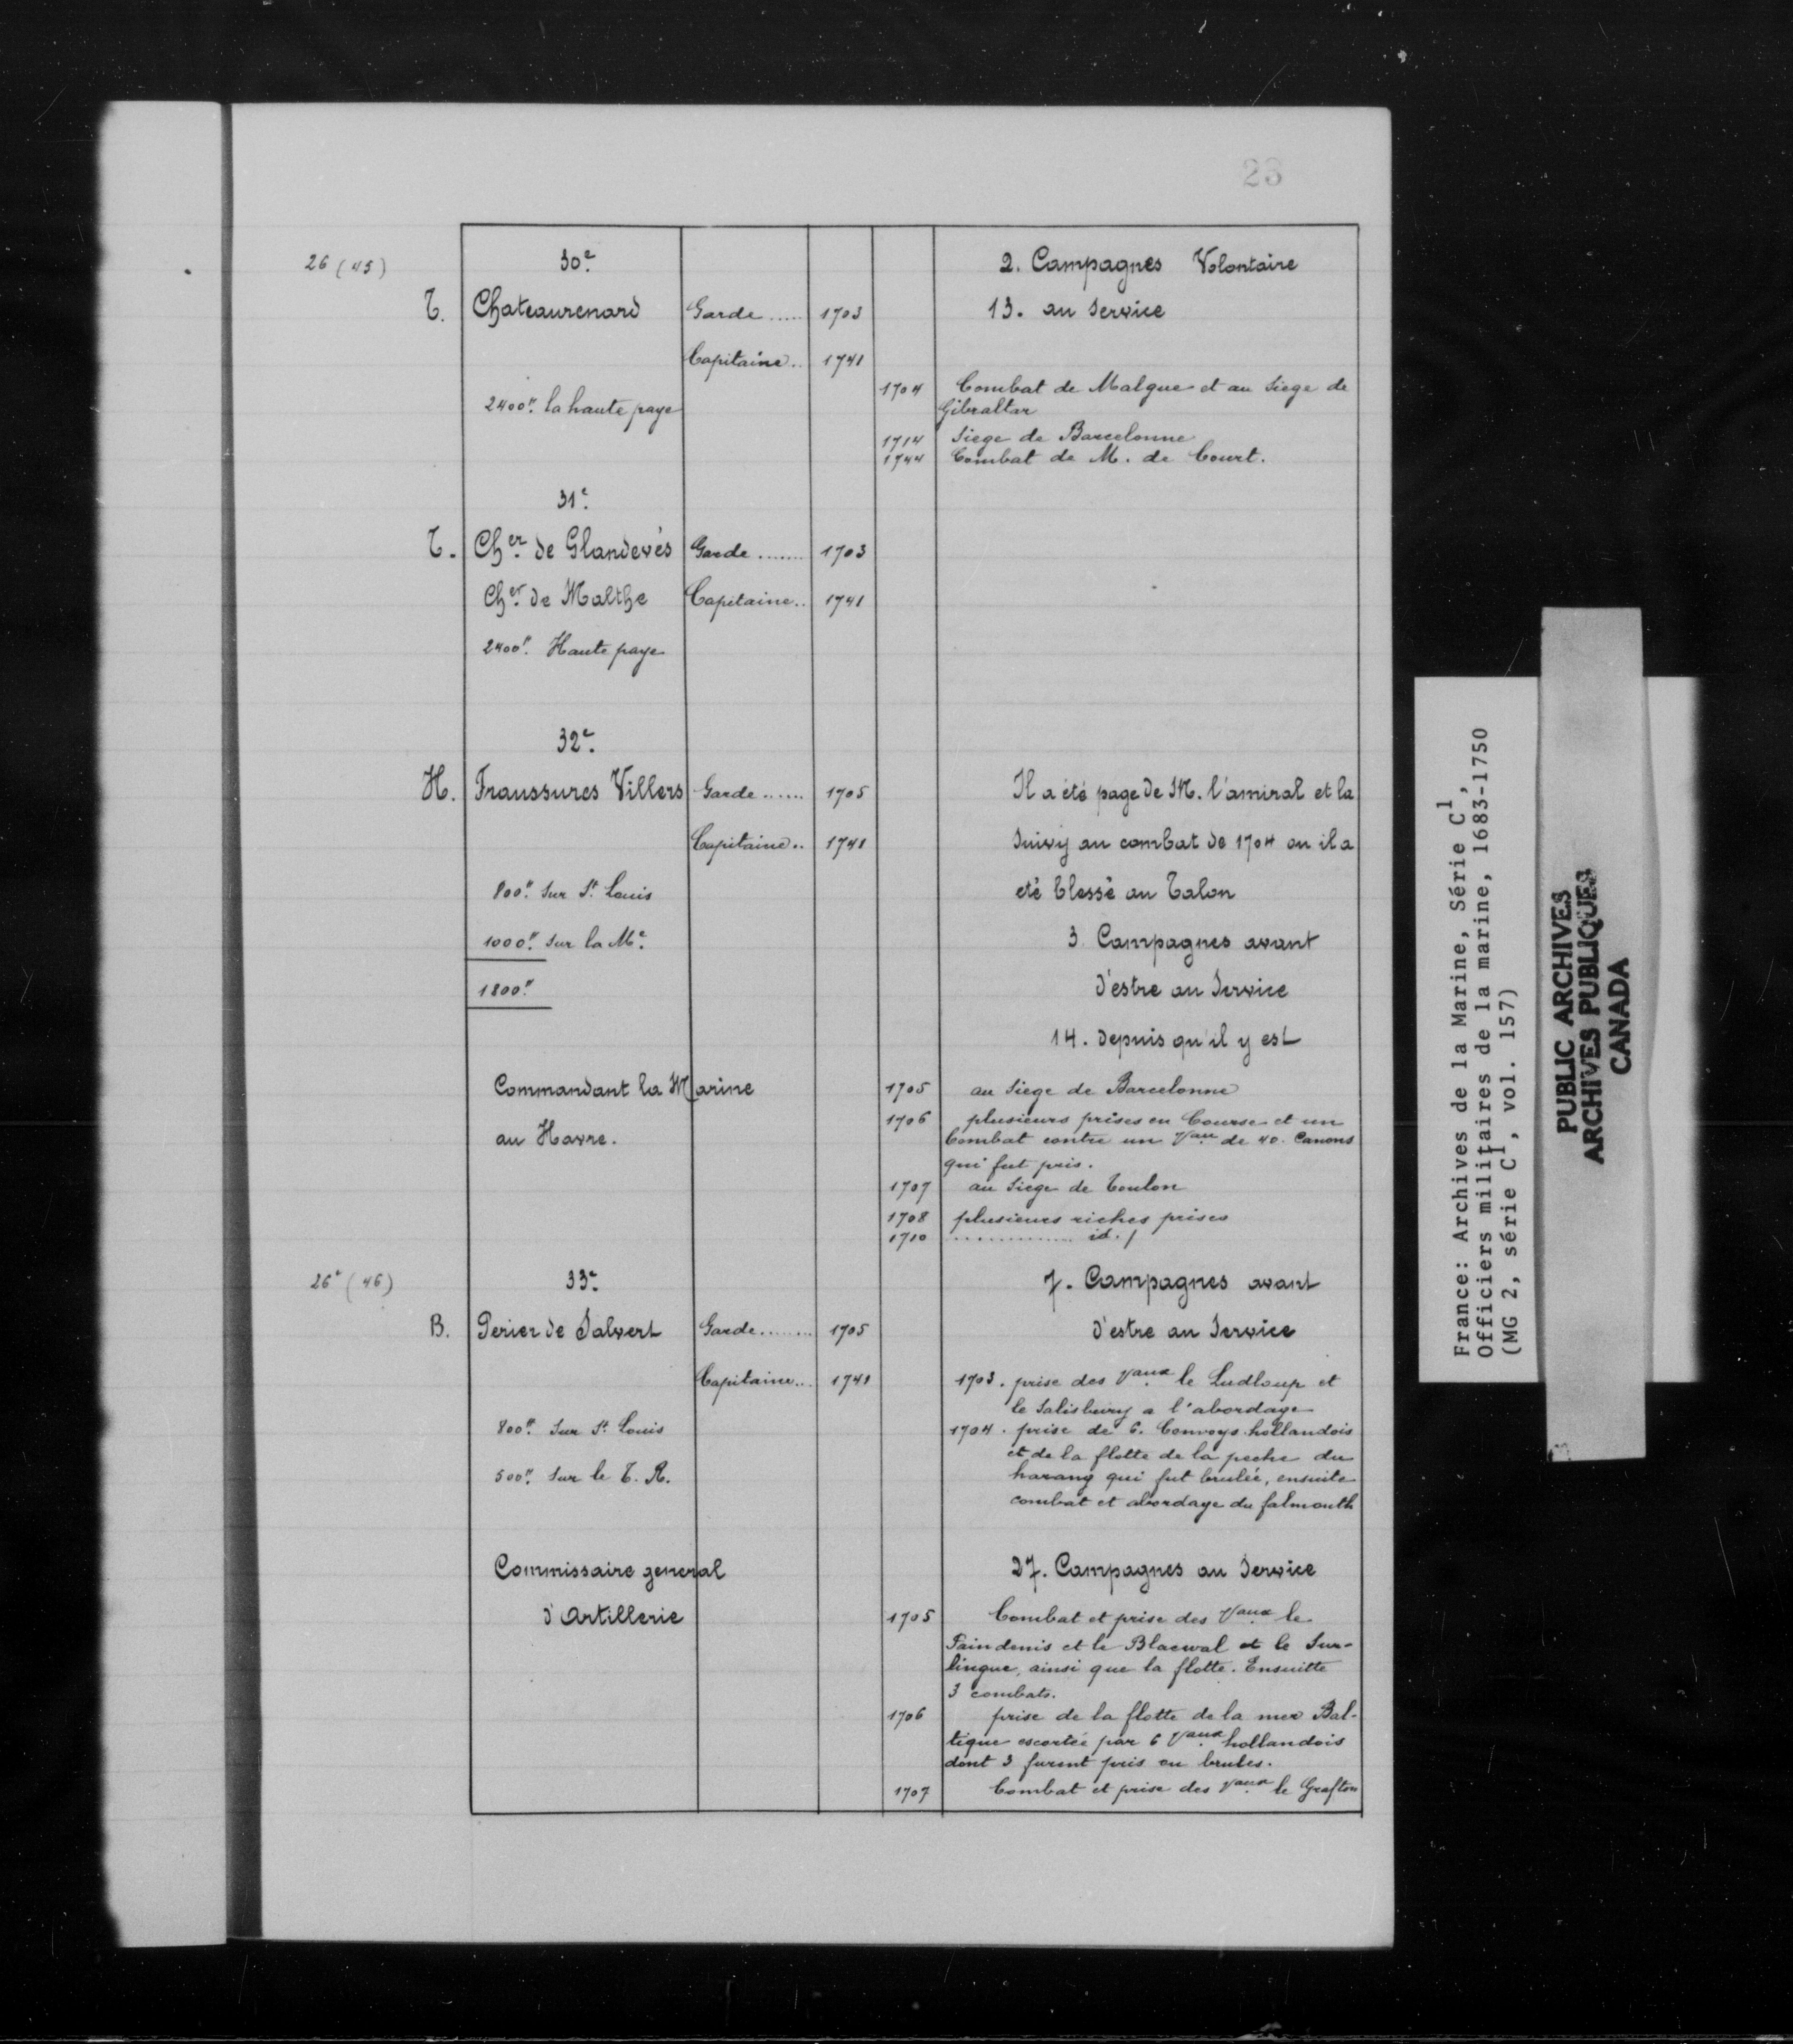 23
26 (45)
30e
2. Campagnes Volontaire
T. Chateaurenard Garde ..... 1703 13. au Service
Capitaine .. 1741
1704 Combat de Malgue et au Siege de
2400". la haute paye
Gibraltar
1714 Siege de Barcelonne
1744 Combat de M. de Court.
31e
T. Cher de Glandevés Garde ....... 1703
Cher de Malthe Capitaine .. 1741
2400". Haute paye
32e
H. Fraussures Villers Garde ...... 1705 Il a été page de M. l'amiral et la
Capitaine .. 1741 Suivy au combat de 1704 ou il a
800". Sur St Louis eté blessé au Talon
1000". Sur la Me. 3 Campagnes avant
1800". d'estre au Service
14. depuis qu'il y est
Commandant la Marine 1705 au Siege de Barcelonne
1706 plusieurs prises en Course et un
au Havre.
Combat contre un Vau de 40. Canons
qui fut pris.
1707 au Siege de Toulon
1708 plusieurs riches prises
1710 ............. id. /
26e (46) 33e 7. Campagnes avant
B. Perier de Salvert Garde ........ 1705 d'estre au Service
Capitaine ... 1741 1703. prise des Vaux le Ludloup et
le Salisbury a l'abordage
800". Sur St Louis 1704. prise de 6. Convoys hollandois
et de la flotte de la peche du
500". Sur le T. R. harang qui fut brulée, ensuite
combat et abordage du falmouth
Commissaire general 27. Campagnes au Service
d'Artillerie 1705 Combat et prise des Vaux le
Paindenis et le Blacwal et le Sur-
lingue, ainsi que la flotte. Ensuitte
3 combats.
1706 prise de la flotte de la mer Bal-
tique escortée par 6 Vaux hollandois
dont 3 furent pris ou brules.
1707 Combat et prise des Vaux le Grafton
France: Archives de la Marine, Série C1,
Officiers militaires de la marine, 1683-1750
(MG 2, série C1, vol. 157)
PUBLIC ARCHIVES
ARCHIVES PUBLIQUES
CANADA